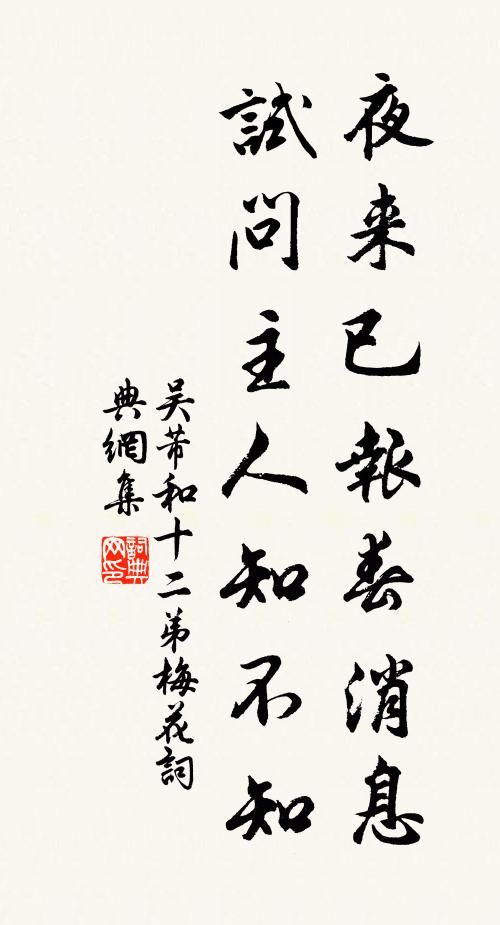 夜来已報春消息
試問主人知不知
吴芾和十二弟梅花詞
典網集
詞典網印